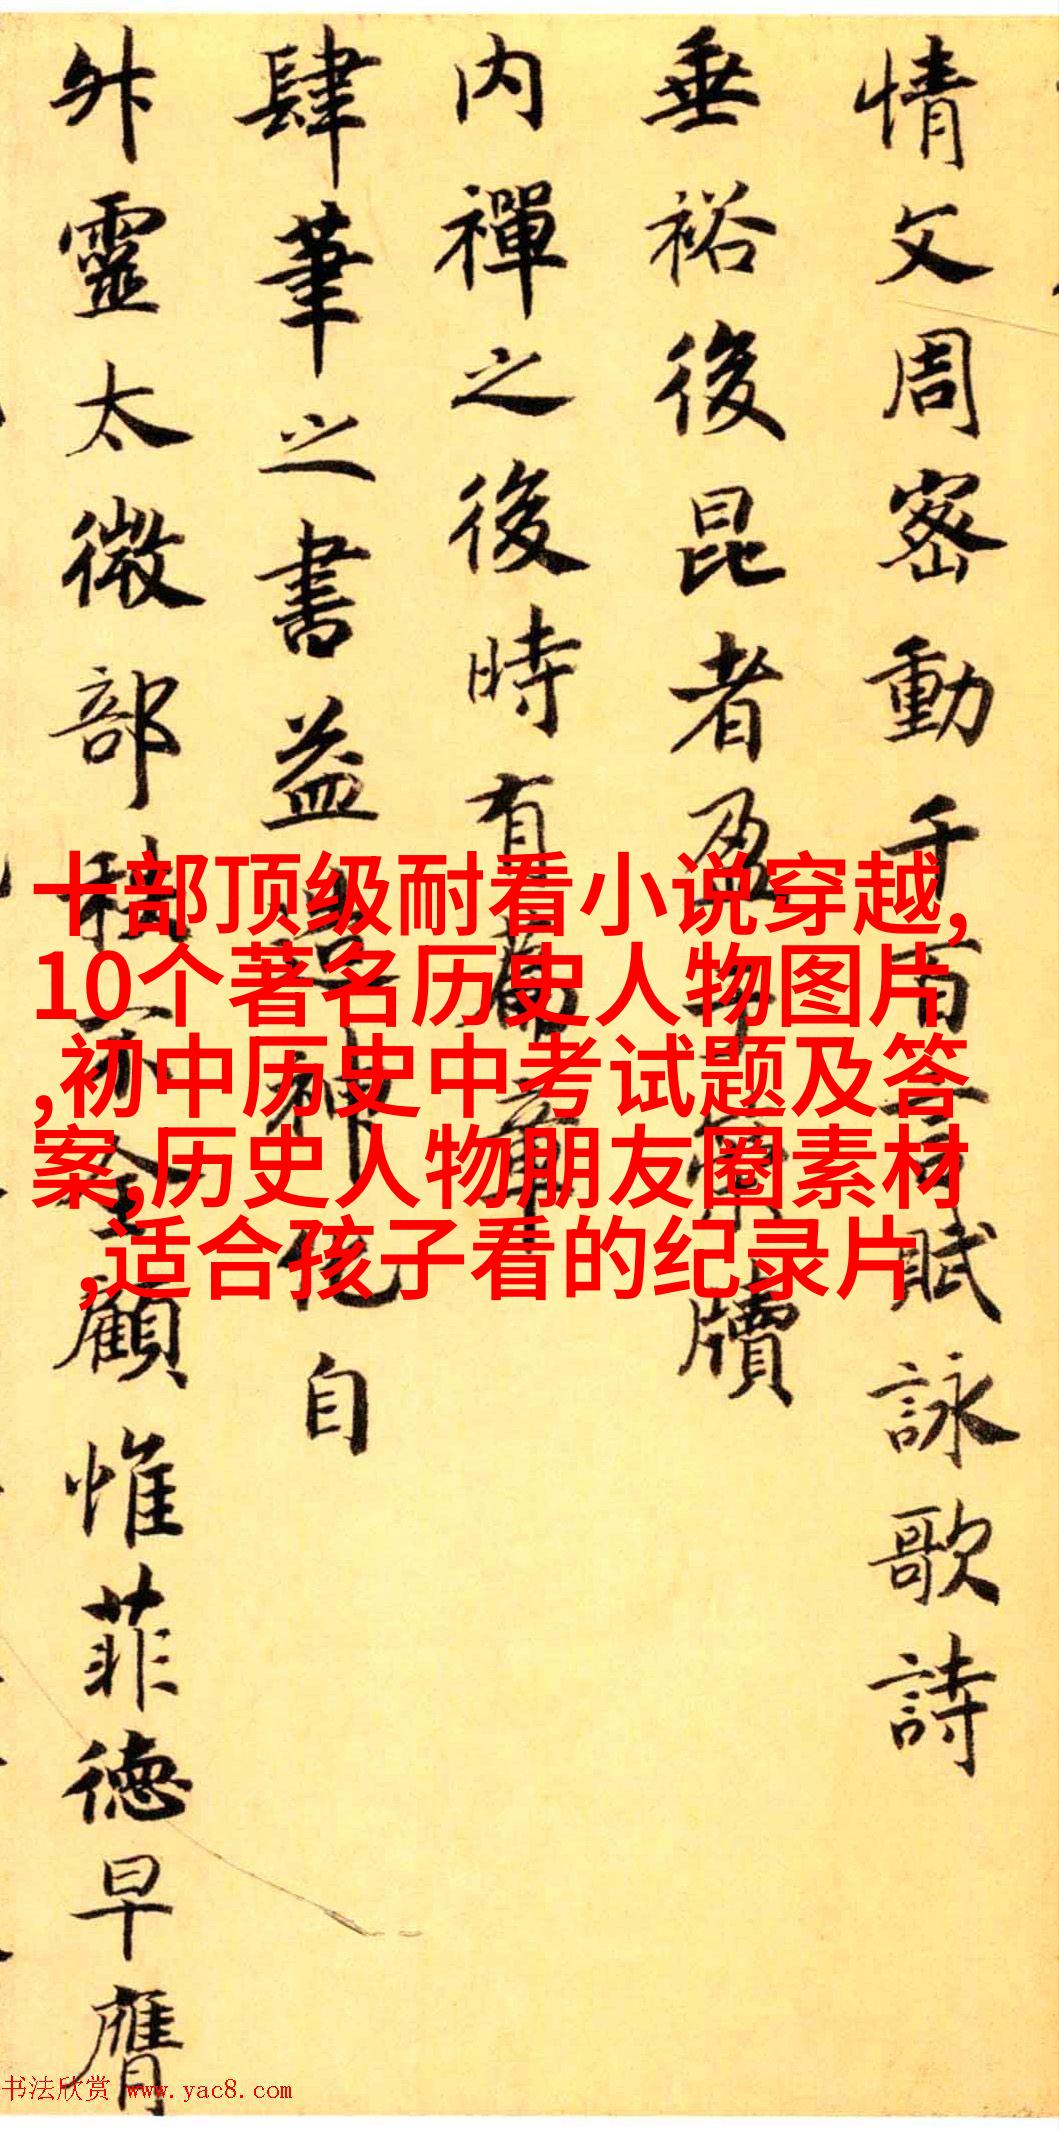 情文周密動千百言賦詠歌詩
垂裕後昆者盈千累牘
内禪之後時有
肆筆之書益造神化自
靈太微部顧惟菲德早膺
十部顶级耐看小说穿越,
10个著名历史人物图片
,初中历史中考试题及答
案,历史人物朋友圈素材
,适合孩子看的纪录片
书法欣赏 www.yac8.com